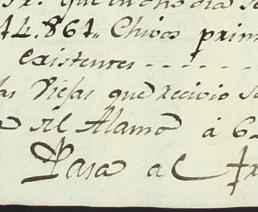 que en dho dia
14.861„ Chivos prim
existentes - - - - -
as Viejas que recivio
el Alamo á 6
Pasa al